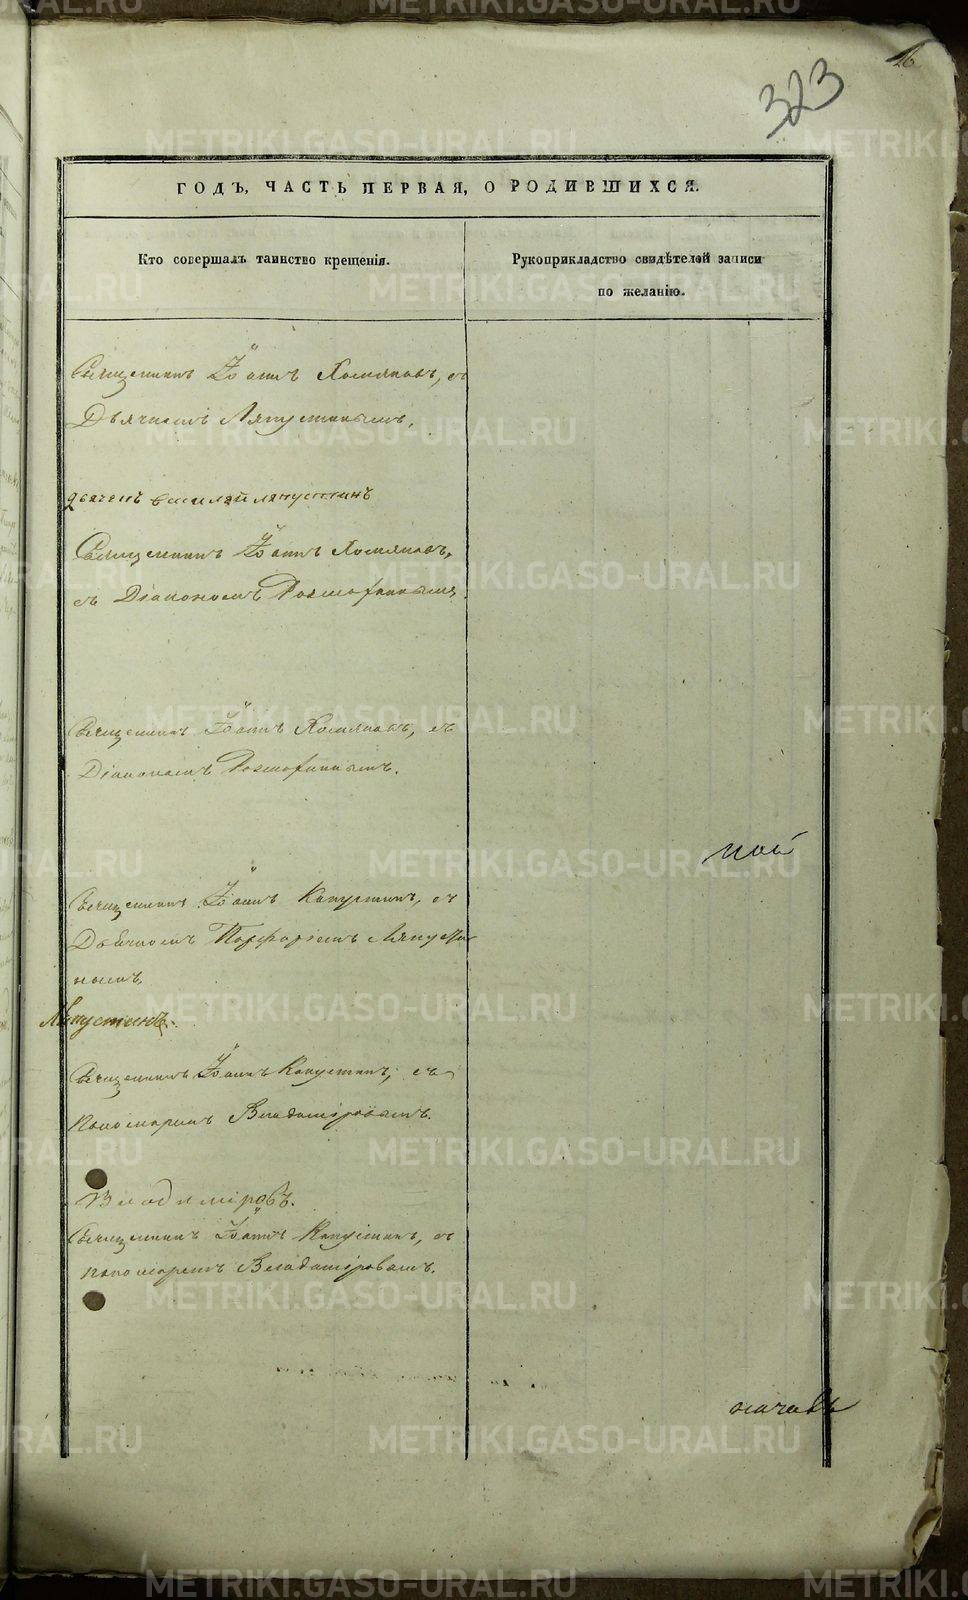 26
323
ГОДЪ, ЧАСТЬ ПЕРВАЯ, О РОДИВШИХСЯ.
Кто совершалъ таинство крещенія.
Рукоприкладство свидѣтелей записи
по желанію.
Священникъ Іоаннъ Хомяковъ, съ
Дьячкомъ Ляпустинымъ,
дьячекъ василей ляпустинъ
Священникъ Іоаннъ Хомяковъ,
съ Діакономъ
Священникъ Іоаннъ Хомяковъ, съ
Діакономъ
Священникъ Іоаннъ Капустинъ, съ
Дьячкомъ Порфиріемъ Ляпусти
нымъ
Ляпустинъ.
Священникъ Іоаннъ Капустинъ, съ
Пономаремъ Владиміровымъ.
Владиміровъ.
Священникъ Іоаннъ Капустинъ, съ
пономаремъ Владиміровымъ.
METRIKI.GASO-URAL.RU